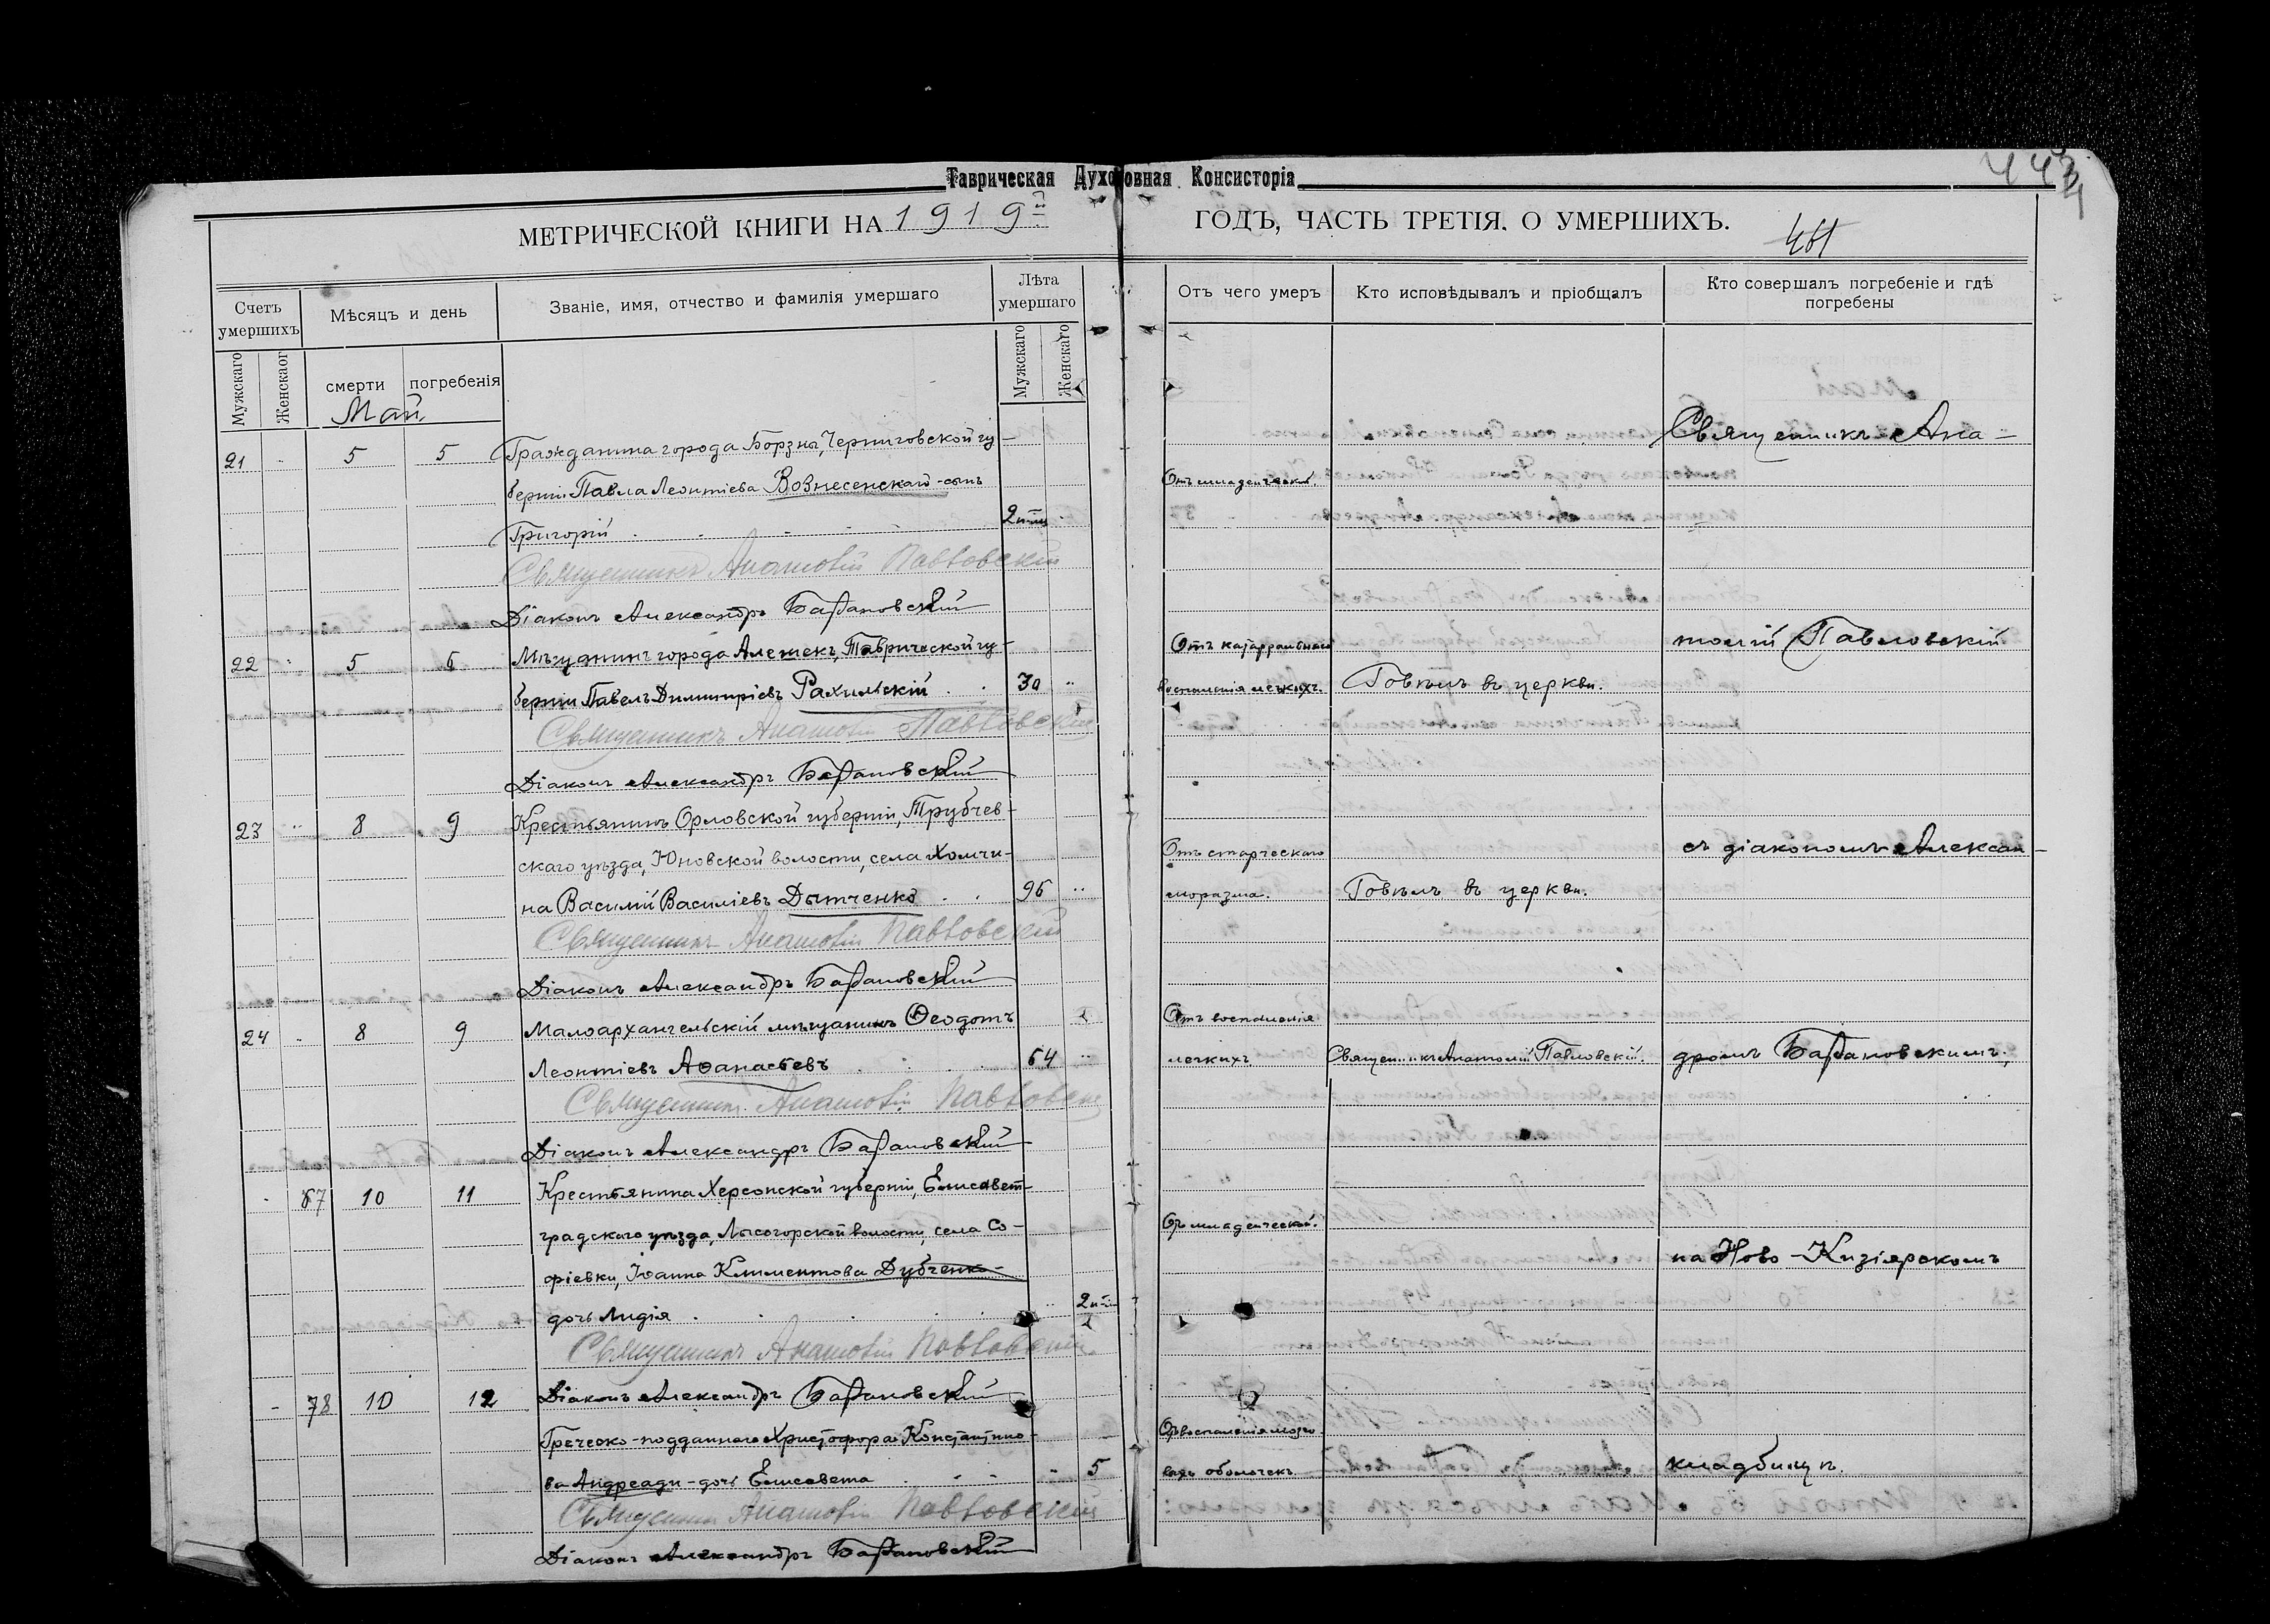 Таврическая Духовная Консисторія
443
4
МЕТРИЧЕСКОЙ КНИГИ НА 1919й ГОДЪ, ЧАСТЬ ТРЕТІЯ, О УМЕРШИХЪ.
Счетъ умершихъ
Мѣсяцъ и день
Званіе, имя, отчество и фамилія умершаго
Лѣта умершаго
Отъ чего умеръ
Кто исповѣдывалъ и пріобщалъ
Кто совершалъ погребеніе и гдѣ погребены
Мужскаго
Женскаго
смерти
погребенія
Мужскаго
Женскаго
Май
21 5 5 Гражданина города Борзны, Черниговской гу-
берніи Павла Леонтіева Вознесенскаго - сынъ
Григорій
Священникъ Анатолій Павловскій
Діаконъ Александръ
22 5 6 Мѣщанинъ города Алешекъ, Таврической гу-
берніи Павелъ Димитріевъ Рахильскій 30
Священникъ Анатолій Павловскій
Діаконъ Александръ
23 8 9 Крестьянинъ Орловской губерніи, Трубчев-
скаго уѣзда, Юновской волости, села Холчи-
на Василій Василіевъ Дытченко 96
Священникъ Анатолій Павловскій
Діаконъ Александръ
24 8 9 Малоархангельскій мѣщанинъ Ѳеодотъ
Леонтіевъ Аѳанасьевъ 64
Священникъ Анатолій Павловскій
Діаконъ Александръ
67 10 11 Крестьянина Херсонской губерніи, Елисавет-
градскаго уѣзда, Лысогорской волости, села Со-
фіевки, Іоанна Климентова Дубченко-
дочь Лидія
Священникъ Анатолій Павловскій
78 10 12 Діаконъ Александръ
Греческо-подданнаго Христофора Константино-
ва Андреади - дочь Елисавета 5
Священникъ Анатолій Павловскій
Діаконъ Александръ
Отъ младенческой
Отъ катарральнаго
воспаленія легкихъ.
Отъ старческаго
маразма.
Отъ воспаленія
легкихъ
Отъ младенческой.
Отъ воспаленія мозго-
выхъ оболочекъ
Говѣлъ въ церкви.
Говѣлъ въ церкви.
Священникъ Анатолій Павловскій.
Священникъ Ана-
толій Павловскій
съ діакономъ Алексан-
дромъ
на Ново-Кизіярскомъ
кладбищѣ.